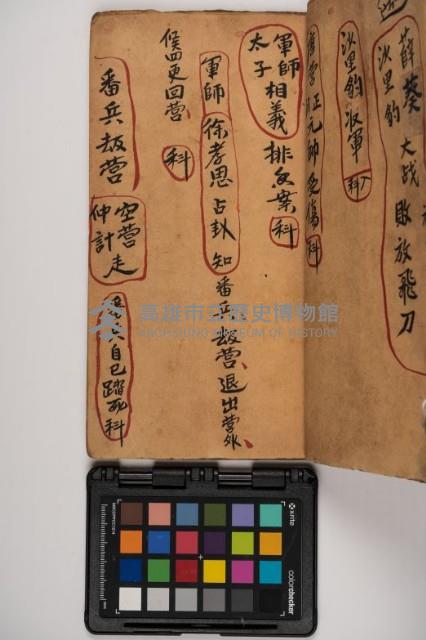 薛葵大战敗放飛刀
沙里豹
沙里豹収軍科
正元帅受傷科
軍師相義排女案科
太子
軍師徐孝思占卦知番兵刼营退出营外
候四更回营科
番兵刼营
空营走
仲計
自己踏死科
高雄市立歷史博物館
KAOHSIUNG MUSEUM OF HISTORY
x-rite
colorchecker